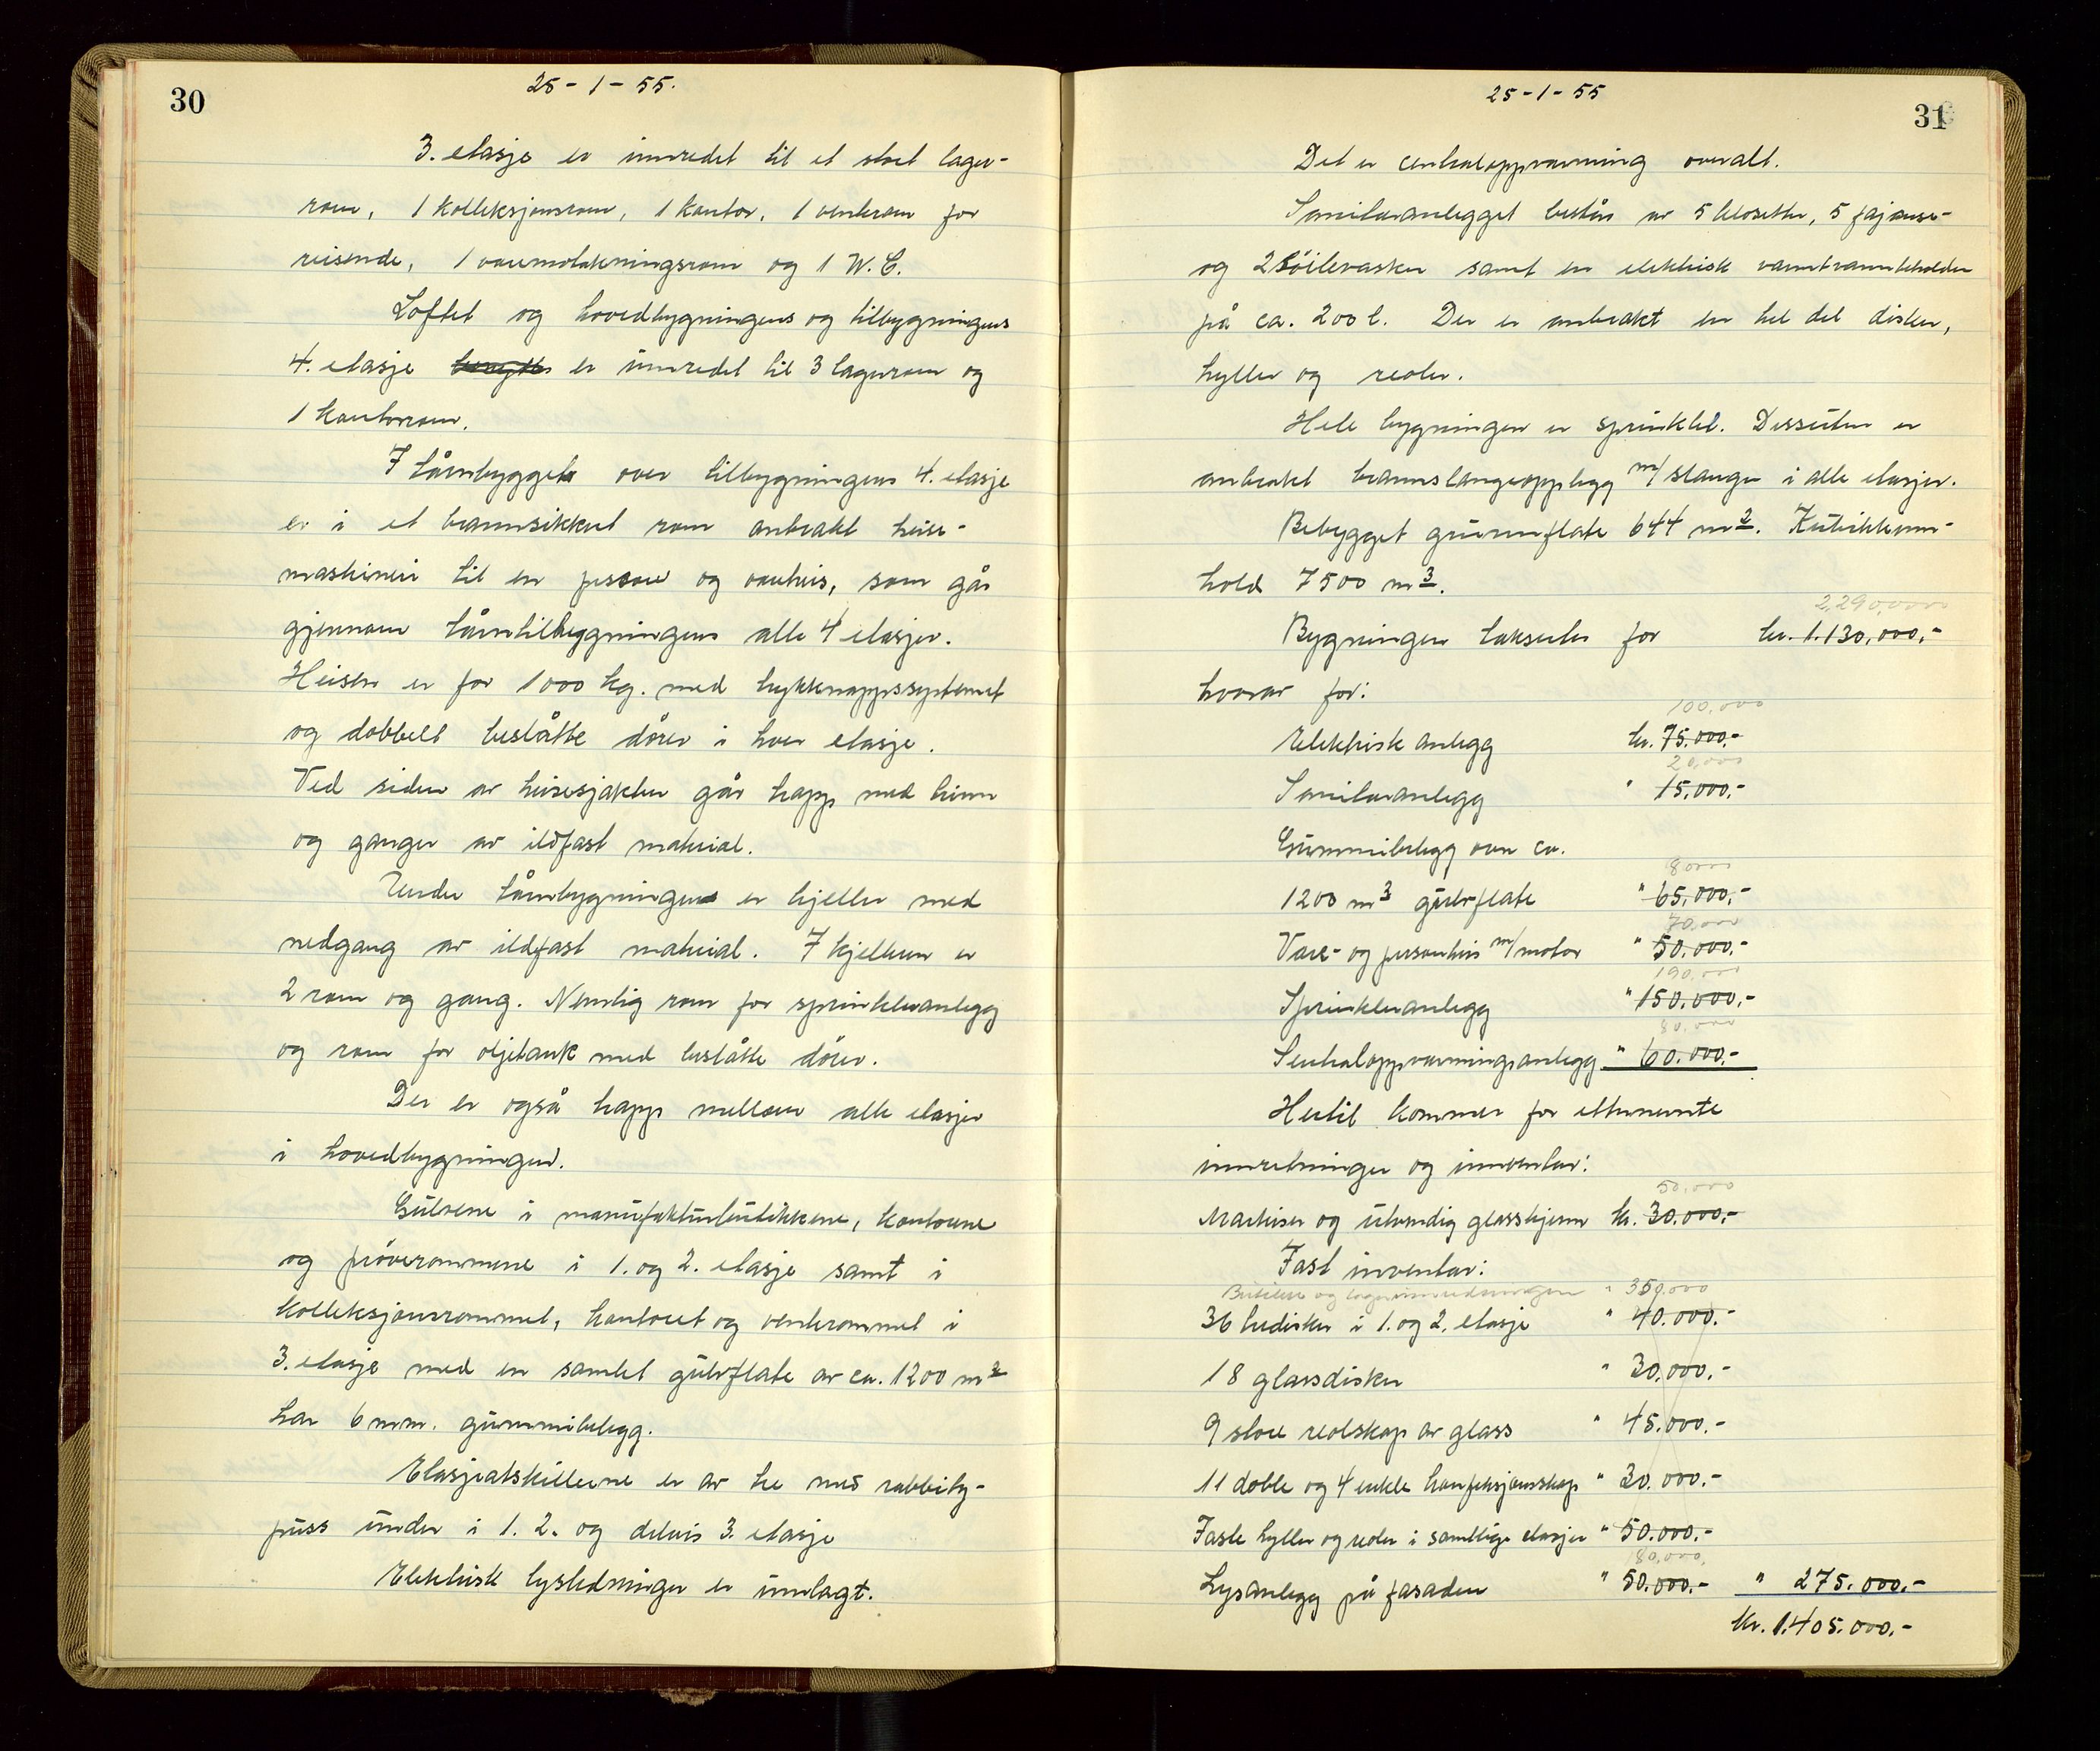 30
25-1-55.
3. etasje er innredet til et stort lager-
rom, 1 kolleksjonsrom, 1 kontor, 1 venterom for
reisende, 1 varemottakningsrom og 1 W.C.
Loftet og hovedbygningens og tilbygningens
4. etasje er innredet til 3 lagerrom og
1 kontorrom.
I tårnbygget over tilbygningens 4. etasje
er i et brannsikkert rom anbrakt heise-
maskineri til en person og vareheis, som går
gjennom tårntilbygningens alle 4 etasjer.
Heisen er for 1000 kg. med trykknappssystemet
og dobbelt beslåtte dører i hver etasje.
Ved siden av heisesjakten går trapp med trinn
og ganger av ildfast material.
Under tårnbygningen er kjeller med
nedgang av ildfast material. I kjelleren er
2 rom og gang. Nemlig rom for sprinkleranlegg
og rom for oljetank med beslåtte dører.
Der er også trapp mellom alle etasjer
i hovedbygningen.
Gulvene i manufakturbutikkene, kontorene
og prøverommene i 1. og 2. etasje samt i
kolleksjonsrommet, kontoret og venterommet i
3. etasje med en samlet gulvflate av ca. 1200 m2
har 6 mm. gummibelegg.
Etasjeatskillerne er av tre med rabbits-
puss under i 1. 2. og delvis 3. etasje
Elektrisk lysledninger er innlagt.
31
25-1-55
Det er centraloppvarming overalt.
Sanitæranlegget består av 5 klosetter, 5 fajanse-
og 2 søilevasker samt en elektrisk varmtvannbeholder
på ca. 200 l. Der er anbrakt en hel del disker,
hyller og reoler.
Hele bygningen er sprinklet. Dessuten er
anbrakt brannslangeopplegg m/slanger i alle etasjer.
Bebygget grunnflate 644 m2. Kubikkinn-
hold 7500 m3.
2,290,000
Bygningen takseres for kr. 1.130,000,-
hvorav for:
100,000
Elektrisk anlegg kr. 75.000.-
20,000
Sanitæranlegg " 15.000.-
Gummibelegg over ca.
8000
1200 m3 gulvflate " 65,000.-
70,000
Vare- og personheis m/motor " 50.000.-
190,000
Sprinkleranlegg " 150.000.-
80,000
Sentraloppvarmingsanlegg " 60.000.-
Hertil kommer for etternevnte
innretninger og innventar:
50,000
Markiser og utvendig glasskjerm kr. 30.000,-
Fast inventar:
Butikk og lagerinnredningen " 350,000
36 tredisker i 1. og 2. etasje " 40.000.-
18 glassdisker " 30,000.-
9 store reolskap av glass " 45.000.-
11 doble og 4 enkle konfeksjonsskap " 30.000.-
Faste hyller og reoler i samtlige etasjer " 50.000.-
180,000,
Lysanlegg på fasaden " 50.000.- " 275.000.-
kr. 1.405.000.-